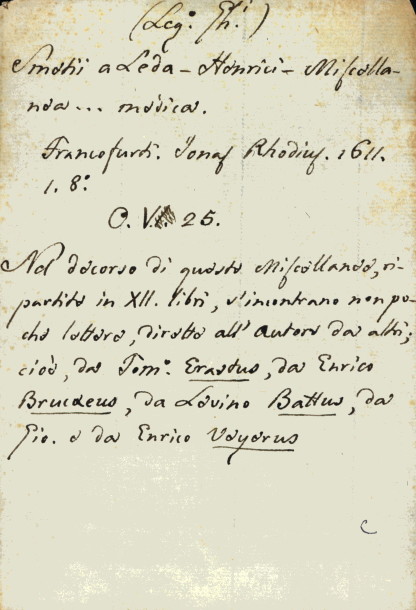 (Leg.º Ph.¹)
Smetii a Leda - Henrici - Miscella-
nea ... medica.
Francofurti. Jonas Rhodius. 1611.
1. 8.º
O. V. 25.
Nel decorso di queste Miscellanee, ri-
partite in XII. libri, s'incontrano non po-
che lettere, dirette all'autore da altri;
cioè, da Tom.º Erastus, da Enrico
Brucaeus, da Levino Battus, da
Gio. e da Enrico Veyerus
C